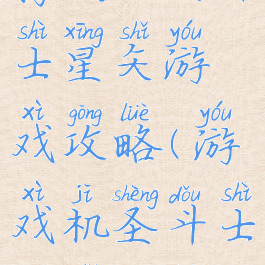 shì xīng shǐ yóu
士星矢游
xì gōng lüè yóu
戏攻略(游
xì jī shèng dǒu shì
戏机圣斗士